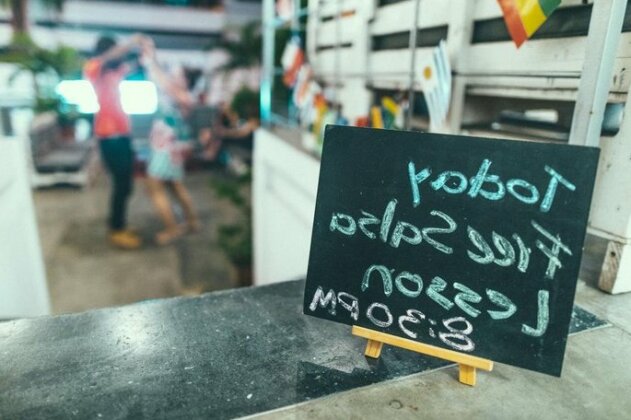 Today
Free Salsa
Lesson
8:30PM